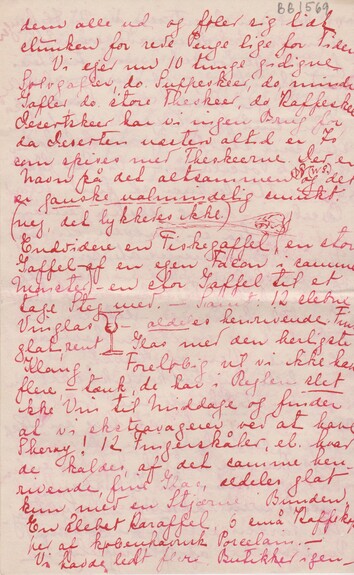 BB1569
dem alle ud og føler sig lidt
clunken for rede Penge lige for Tiden
Vi ejer nu 10 tunge gedigne
Sølvgafler, do. Suppeskeer, do mindre
Gafler do. store Theskeer, do Kaffeske
Dessertskeer har vi ingen Brug for
da Deserten næsten altid er Is
som spises med Theskeerne. Der er
Navn på det altsammen det
er ganske ualmindelig smukt.
(nej, det lykkedes ikke)
Endvidere en Fiskegaffel, en stor
Gaffel af en egen Facon i samme
Mønster en stor Gaffel til at
tage Steg med. – Samt 12 slebne
Vinglas – aldeles henrivende. Fint
glat, rent Glas med den herligste
Klang. Foreløbig vil vi ikke have
flere – tænk, de har i Reglen slet
ikke Vin til Middage og finder
at vi ekstravagerer ved at have
Sherry! 12 Fingerskåler, el. hvad
de kaldes, af det samme hen-
rivende, fine Glas, aldeles glat
kun med en Stjerne i Bunden,
En slebet Karaffel, 6 små Kaffeko
per af københavnsk Porcelain. –
Vi havde ledt flere Butikker igen-